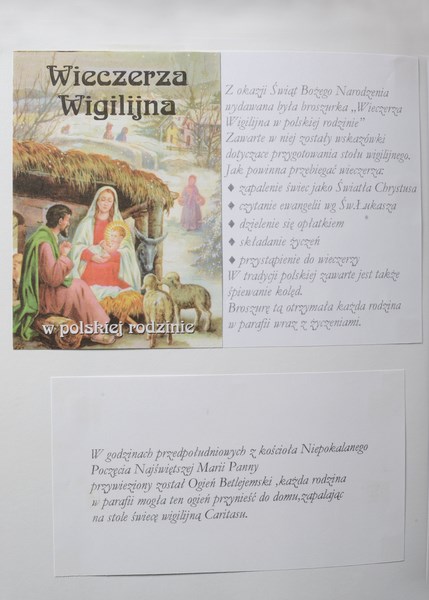 Wieczerza
Wigilijna
w polskiej rodzinie
Z okazji Świąt Bożego Narodzenia
wydawana była broszurka „Wieczerza
Wigilijna w polskiej rodzinie”
Zawarte w niej zostały wskazówki
dotyczące przygotowania stołu wigilijnego.
Jak powinna przebiegać wieczerza:
♦ zapalenie świec jako Światła Chrystusa
♦ czytanie ewangelii wg Św.Łukasza
♦ dzielenie się opłatkiem
♦ składanie życzeń
♦ przystąpienie do wieczerzy
W tradycji polskiej zawarte jest także
śpiewanie kolęd.
Broszurę tą otrzymała każda rodzina
w parafii wraz z życzeniami.
W godzinach przedpołudniowych z kościoła Niepokalanego
Poczęcia Najświętszej Marii Panny
przywieziony został Ogień Betlejemski ,każda rodzina
w parafii mogła ten ogień przynieść do domu,zapalając
na stole świecę wigilijną Caritasu.